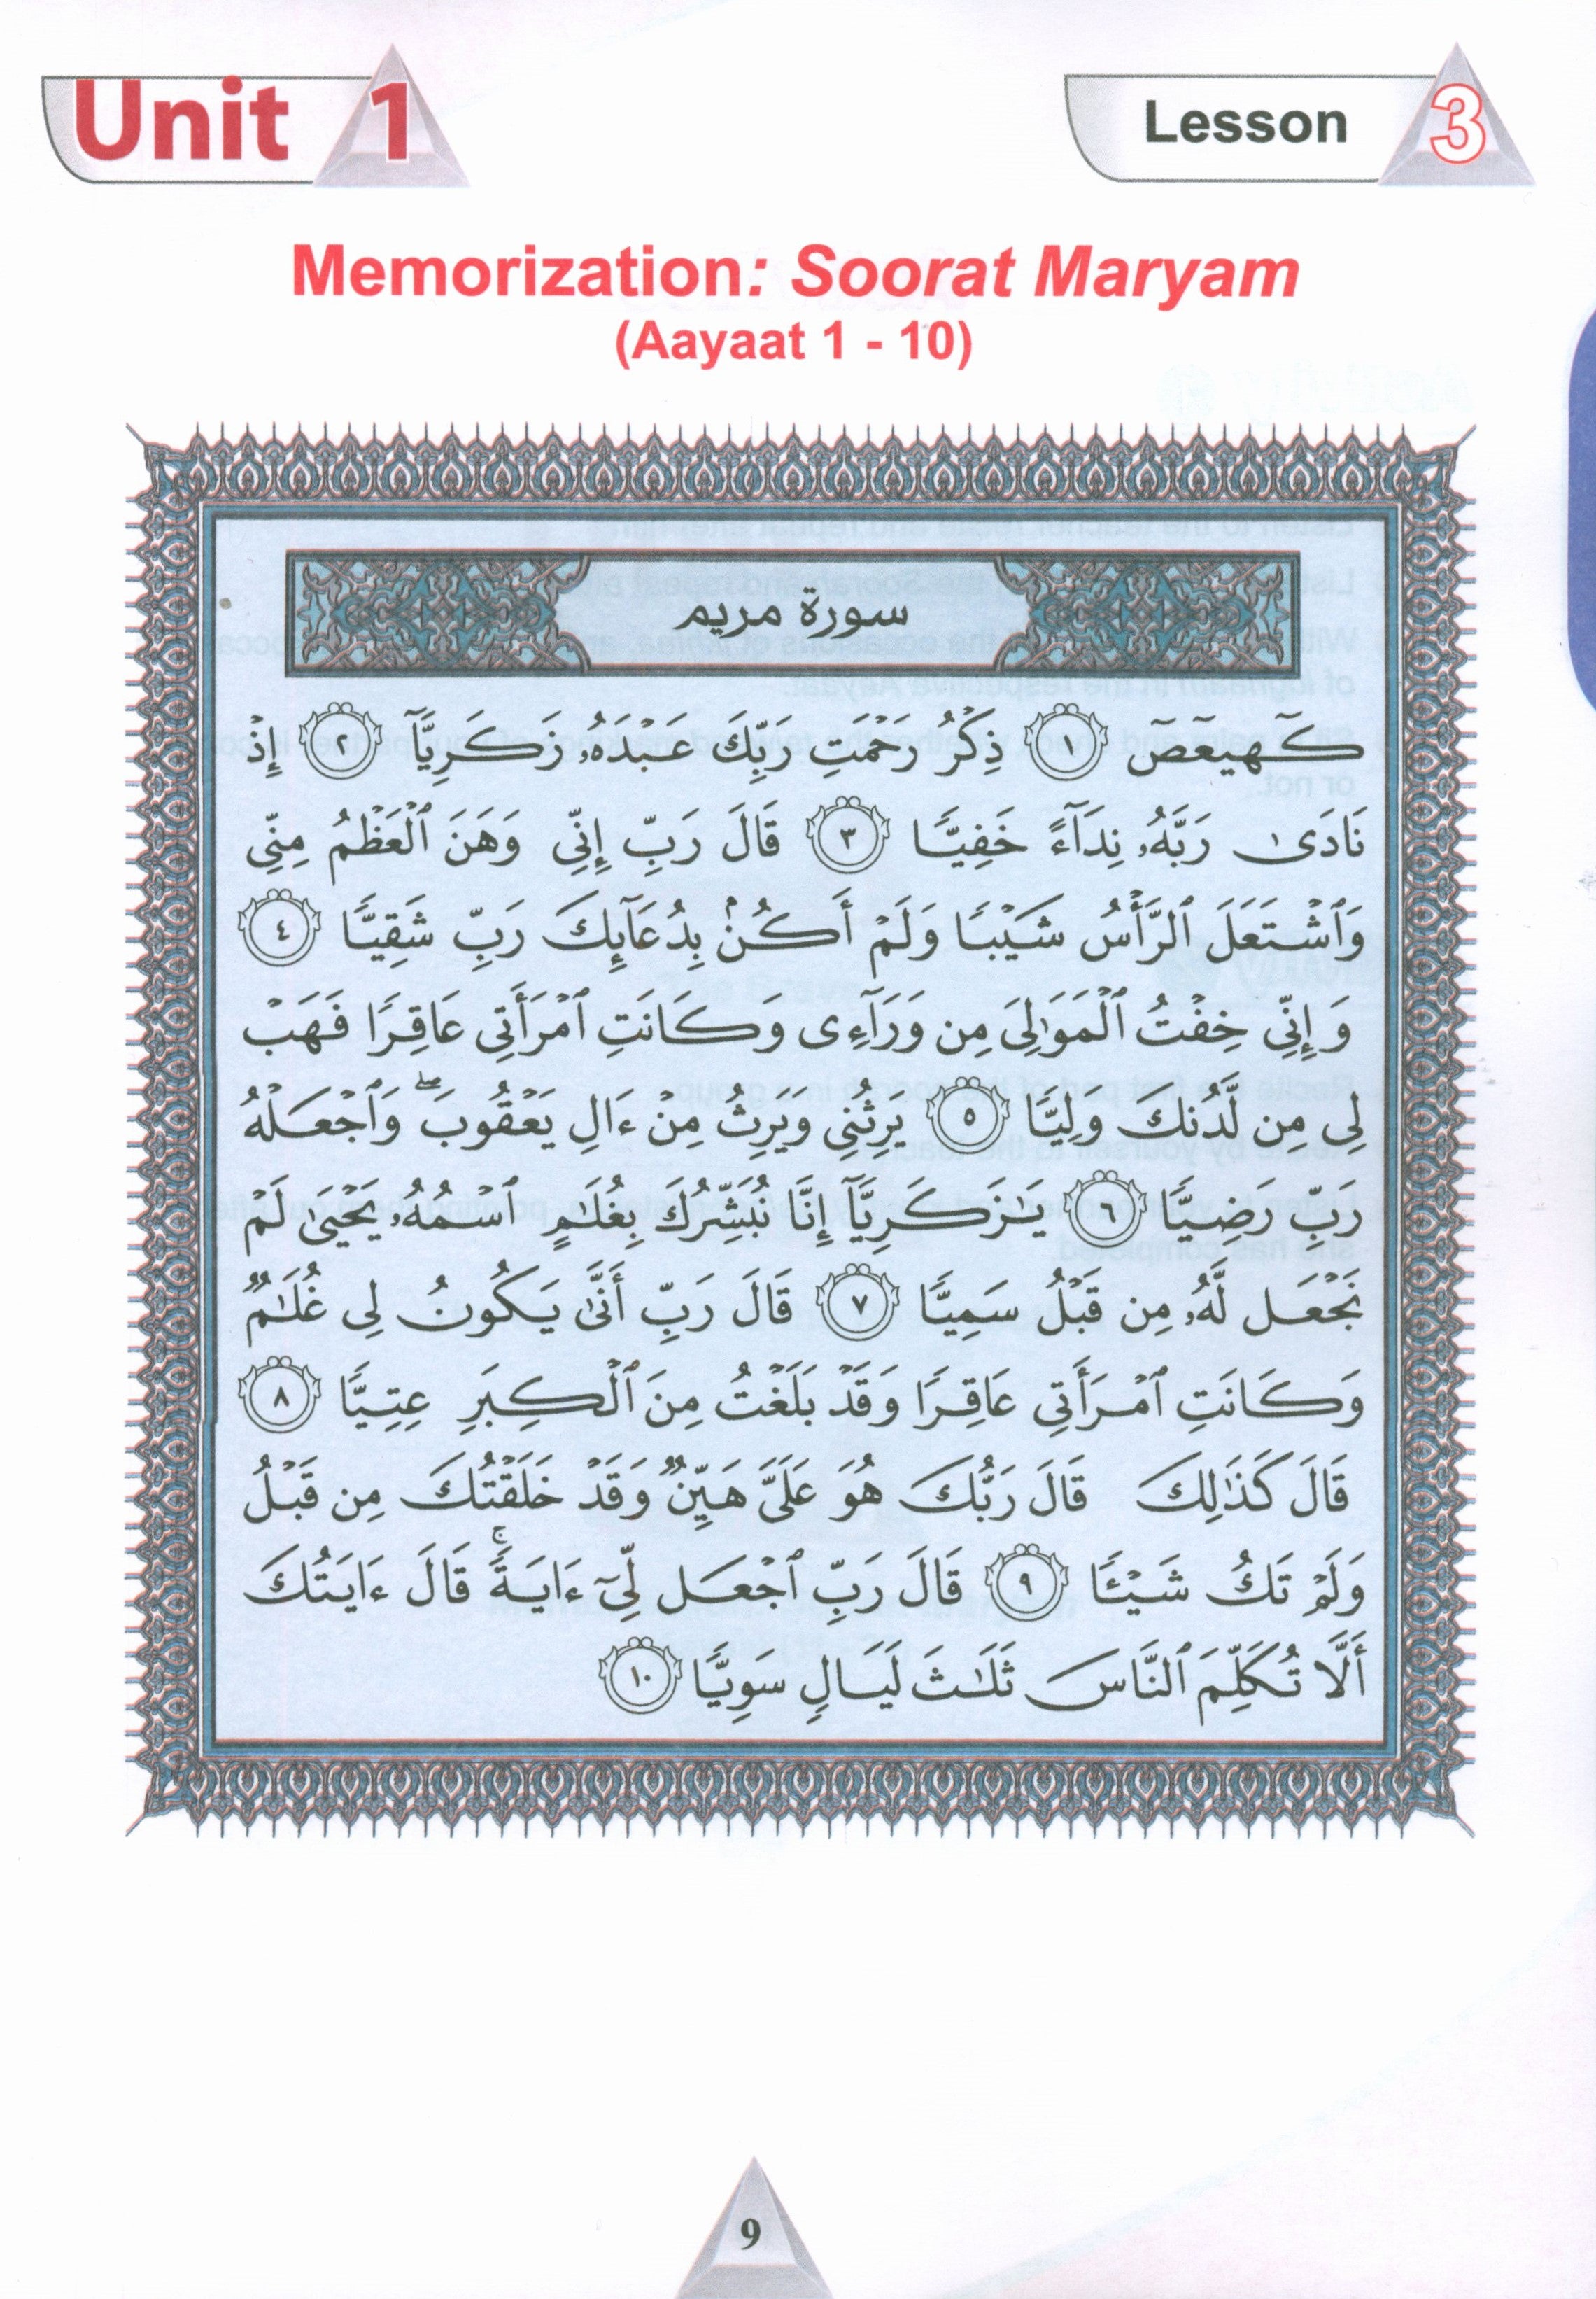 Unit 1
Lesson 3
Memorization: Soorat Maryam
(Aayaat 1 - 10)
سورة مريم
كٓهيعٓصٓ ١ ذِكْرُ رَحْمَتِ رَبِّكَ عَبْدَهُۥ زَكَرِيَّآ ٢ إِذْ
نَادَىٰ رَبَّهُۥ نِدَآءً خَفِيًّا ٣ قَالَ رَبِّ إِنِّى وَهَنَ ٱلْعَظْمُ مِنِّى
وَٱشْتَعَلَ ٱلرَّأْسُ شَيْبًا وَلَمْ أَكُنۢ بِدُعَآئِكَ رَبِّ شَقِيًّا ٤
وَإِنِّى خِفْتُ ٱلْمَوَٰلِىَ مِن وَرَآءِى وَكَانَتِ ٱمْرَأَتِى عَاقِرًا فَهَبْ
لِى مِن لَّدُنكَ وَلِيًّا ٥ يَرِثُنِى وَيَرِثُ مِنْ ءَالِ يَعْقُوبَ ۖ وَٱجْعَلْهُ
رَبِّ رَضِيًّا ٦ يَـٰزَكَرِيَّآ إِنَّا نُبَشِّرُكَ بِغُلَـٰمٍ ٱسْمُهُۥ يَحْيَىٰ لَمْ
نَجْعَل لَّهُۥ مِن قَبْلُ سَمِيًّا ٧ قَالَ رَبِّ أَنَّىٰ يَكُونُ لِى غُلَـٰمٌ
وَكَانَتِ ٱمْرَأَتِى عَاقِرًا وَقَدْ بَلَغْتُ مِنَ ٱلْكِبَرِ عِتِيًّا ٨
قَالَ كَذَٰلِكَ قَالَ رَبُّكَ هُوَ عَلَىَّ هَيِّنٌ وَقَدْ خَلَقْتُكَ مِن قَبْلُ
وَلَمْ تَكُ شَيْـًٔا ٩ قَالَ رَبِّ ٱجْعَل لِّىٓ ءَايَةً ۚ قَالَ ءَايَتُكَ
أَلَّا تُكَلِّمَ ٱلنَّاسَ ثَلَـٰثَ لَيَالٍ سَوِيًّا ١٠
9